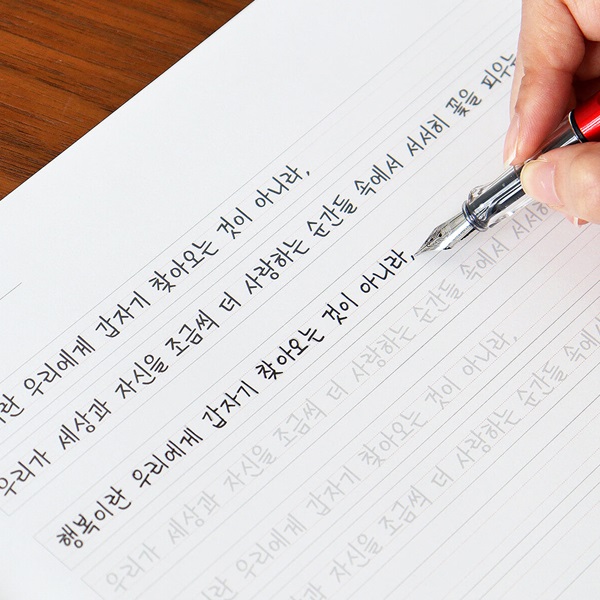 란 우리에게 갑자기 찾아오는 것이 아니라,
우리가 세상과 자신을 조금씩 더 사랑하는 순간들 속에서 서서히 꽃을 피우는
행복이란 우리에게 갑자기 찾아오는 것이 아니라,
우리가 세상과 자신을 조금씩 더 사랑하는 순간들 속에서 서서히
란 우리에게 갑자기 찾아오는 것이 아니라,
자신을 조금씩 더 사랑하는 순간들 속에서